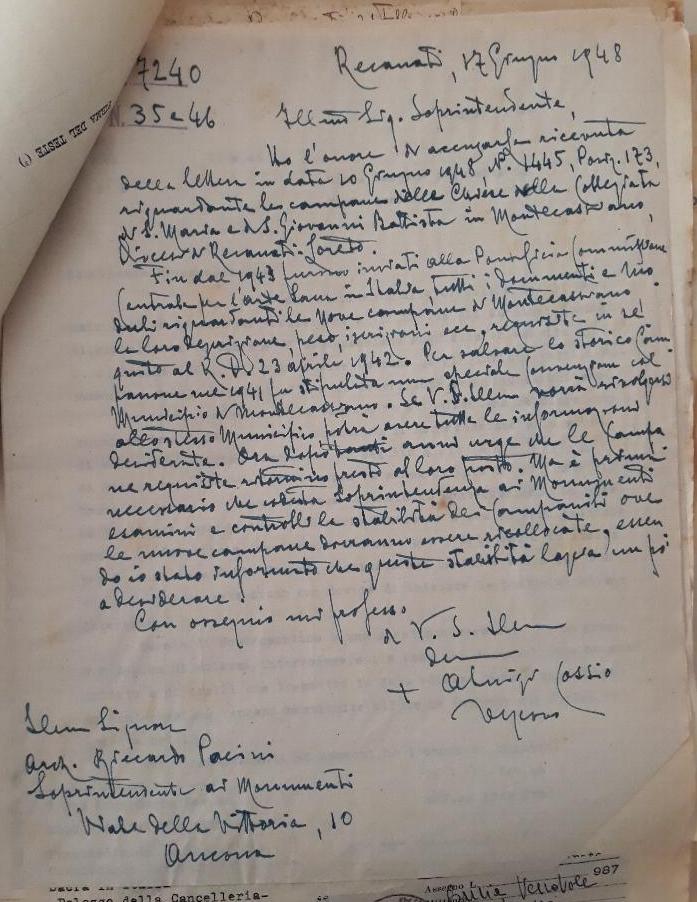 7240
N. 35 e 46
FIRMA DEL TESTE (*)
Recanati, 17 Giugno 1948
Ill.mo Sig. Soprintendente,
Ho l'onore d'accusarLe ricevuta
della lettera in data 10 Giugno 1948, N°. 1445, Posiz. 173,
riguardante le campane delle Chiese della Collegiata
di S. Maria e di S. Giovanni Battista in Montecassiano,
Diocesi di Recanati-Loreto.
Fin dal 1943 furono inviati alla Pontificia Commissione
Centrale per l'arte Sacra in Italia tutti i documenti e mo
duli riguardanti le nove campane di Montecassiano
la loro descrizione, peso, iscrizioni ecc, requisite in se
guito al R. D. 23 aprile 1942. Per salvare lo storico Cam
panone nel 1941 fu stipulata una speciale Convenzione col
Municipio di Montecassiano. Se V. S. Ill.ma vorrà rivolgersi
allo stesso Municipio potrà avere tutte le informazioni
desiderate. Ora dopo anni urge che le Campa
ne requisite ritornino presto al loro posto. Ma è prima
necessario che codesta Soprintendenza ai Monumenti
esamini e controlli la stabilità dei Campanili ove
le nuove campane dovranno essere ricollocate, essen
do io stato informato che questa stabilità lascia un po'
a desiderare.
Con ossequio mi professo
di V. S. Ill.ma
dev.mo
+ Aluigi Cossio
Vescovo
Ill.mo Signor
Arch. Riccardo Pacini
Soprintendente ai Monumenti
Viale della Vittoria, 10
Ancona
987
Palazzo della Cancelleria-